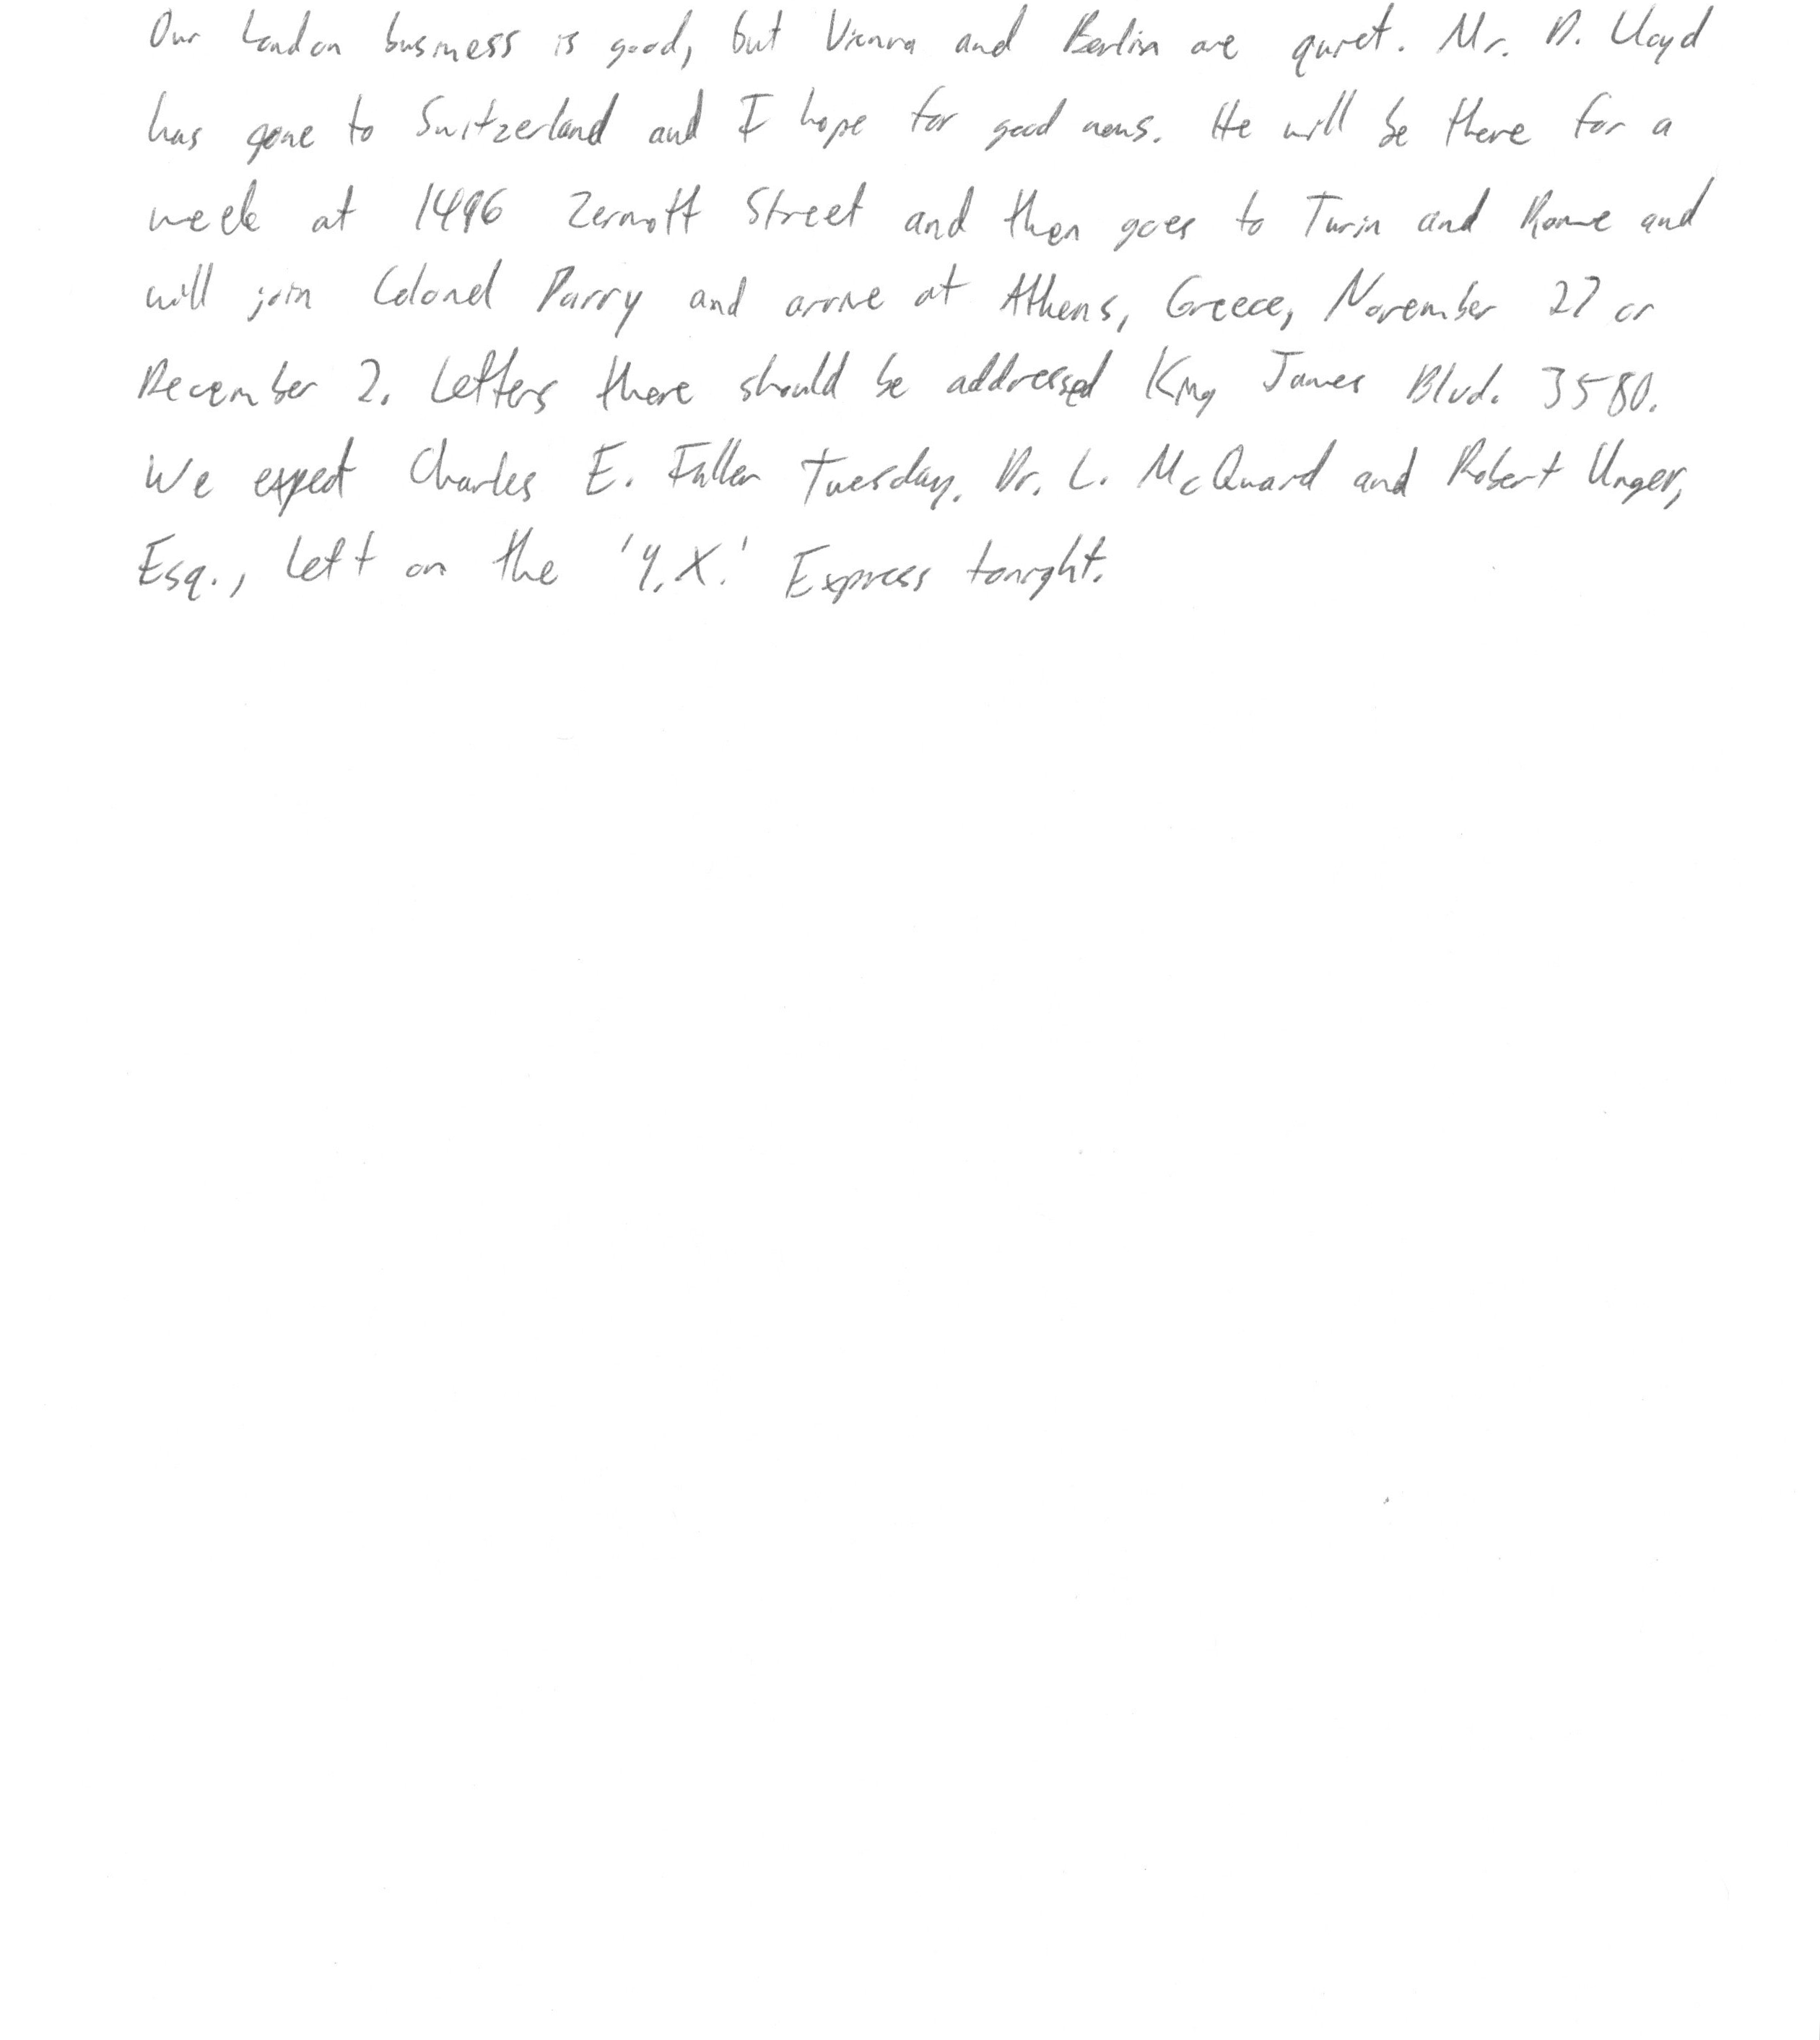 Our London business is good, but Vienna and Berlin are quiet. Mr. D. Lloyd
has gone to Switzerland and I hope for good news. He will be there for a
week at 1496 Zermott Street and then goes to Turin and Rome and
will join Colonel Parry and arrive at Athens, Greece, November 27 or
December 2. Letters there should be addressed King James Blvd. 3580.
We expect Charles E. Fuller Tuesday. Dr. L. McQuard and Robert Unger,
Esq., left on the 'Y.X.' Express tonight.